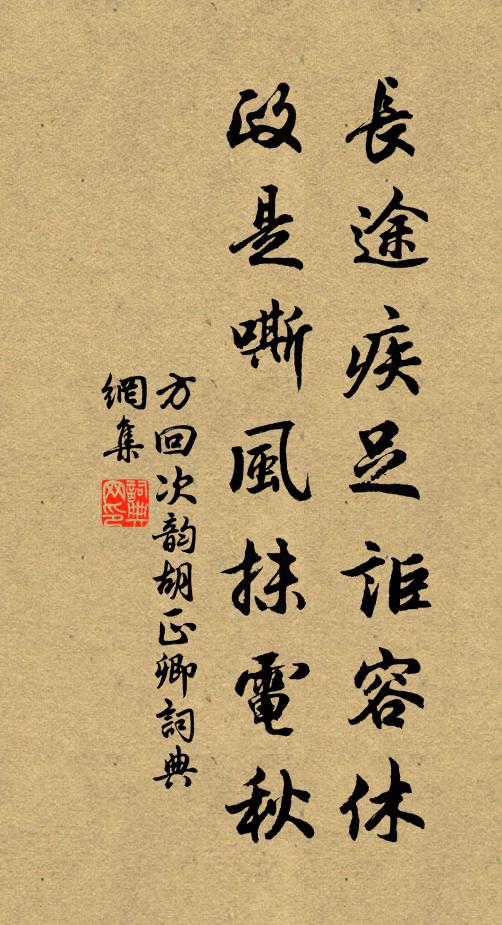 長途疾足詎容休
政是嘶風抹電秋
方回次韵胡正卿詞典
網集
詞典網印